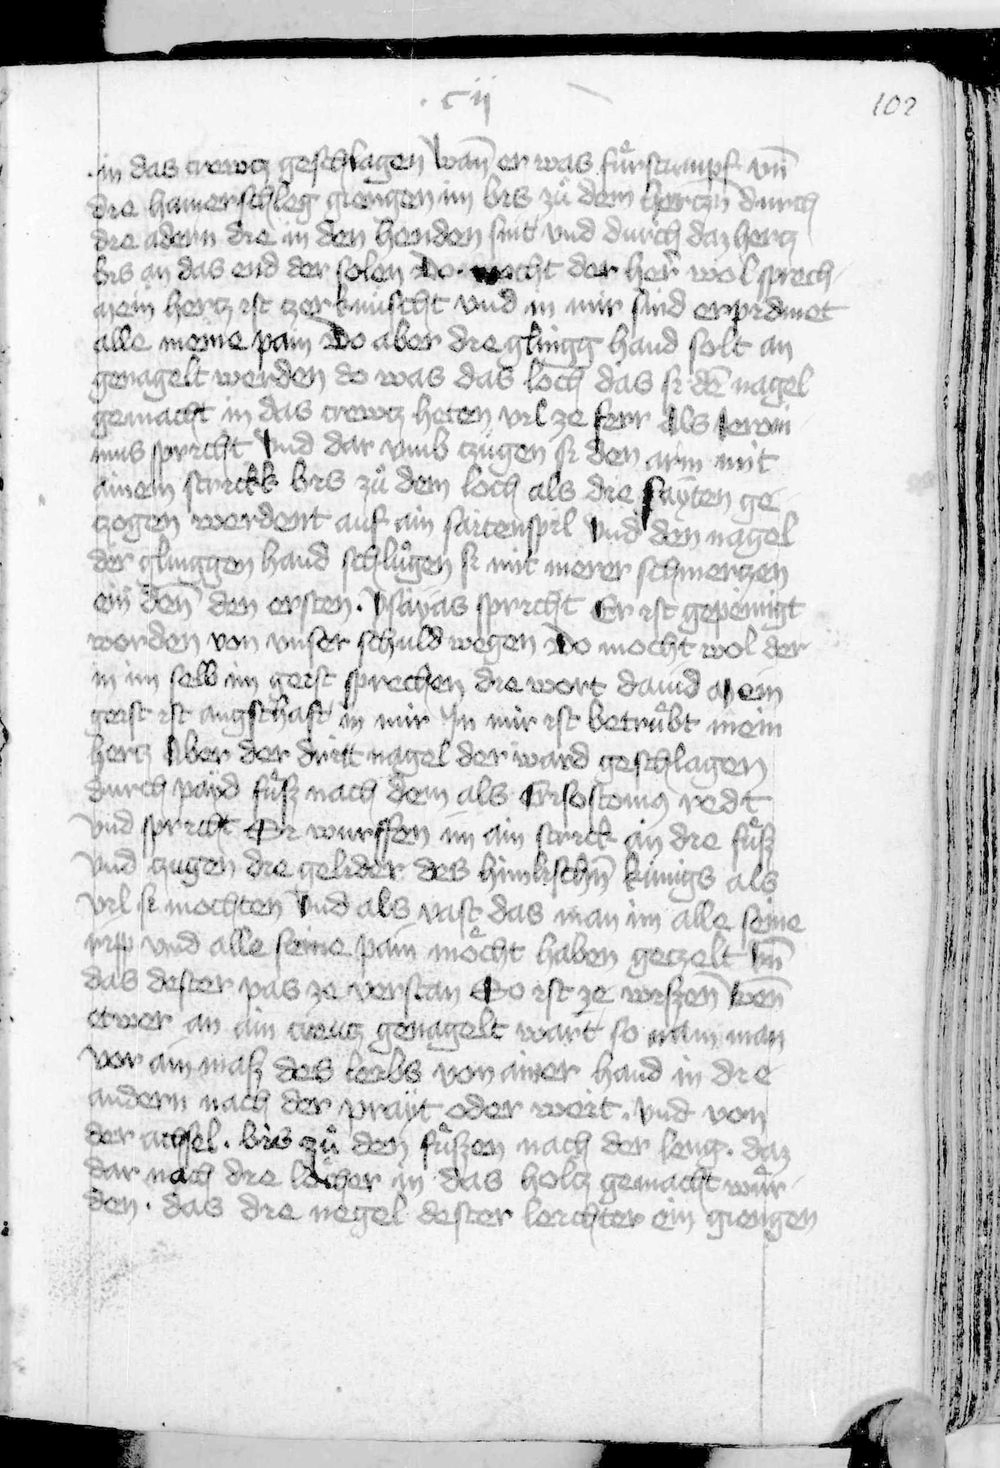 · c ij
102
in das crewtz geschlagen Wañ er was fürstumpf vnd̄
die hamerschleg giengen im bis zů dem hertzn̄ durch
die adern die in den henden sint vnd durch daz hertz
bis an das end der solen Do mocht der her wol sprech
mein hertz ist zerknischt vnd in mir sind erpidmet
alle meine pain Do aber die glingg hand solt an
genagelt werden do was das loch das si dē nagel
gemacht in das crewtz heten vil ze ferr Als Ieroni
mus spricht Vnd dar vmb zugen si den arm mit
ainem strickk bis zů dem loch als die sayten ge
zogen werdent auf ain saitenspil Vnd den nagel
der glinggen hand schlůgen si mit merer schmertzen
ein den̄ den ersten. Ysayas spricht Er ist gepeinigt
worden von vnser schuld wegen Do mocht wol der
in im selb im geist sprechen die wort dauid Mein
geist ist angsthaft in mir In mir ist betrůbt mein
hertz Aber der dritt nagel der ward geschlagen
durch payd fůsz nach dem als Crisostomꝰ redt
vnd spricht Si wurffen im ain strick an die fůsz
vnd zugen die gelider des himlischn̄ künigs als
vil si mochten Vnd als vast das man im alle seine
ripp vnd alle seine pain mőcht haben getzelt Vn̄
das dester pas ze verstan So ist ze wiszen Wen̄
etwer an ain creutz genagelt wart so nam man
vor ain masz des leibs von ainer hand in die
andern nach der prayt oder weit. Vnd von
der achsel. bis zů den fůszen nach der leng. daz
dar nach die löcher in das holtz gemacht wůr
den. das die negel dester leichter ein giengen